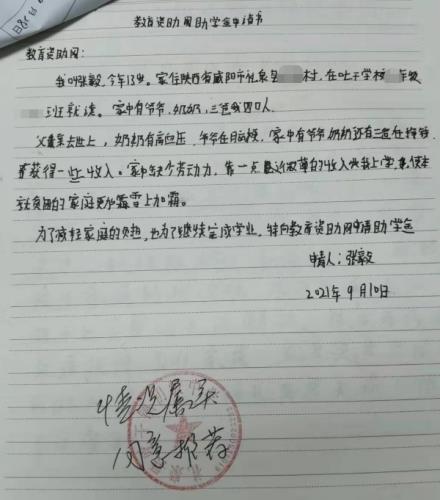 教育资助网助学金申请书
教育资助网:
我叫张毅,今年13岁。家住陕西省咸阳市礼泉县 村,在叱干学校 年级
班就读。家中有爷爷、奶奶、三爸我四口人。
父量亲去世上,奶奶有高血压,爷爷在
获得一些收入。家中缺个劳动力,靠一点 微薄的收入供我上学,使本
就贫困的家庭更加霜雪上加霜。
为了减轻家庭的负担,也为了继续完成学业,特向教育资助网申请助学金
申请人:张毅
2021年9月10日
情况属实
同意推荐